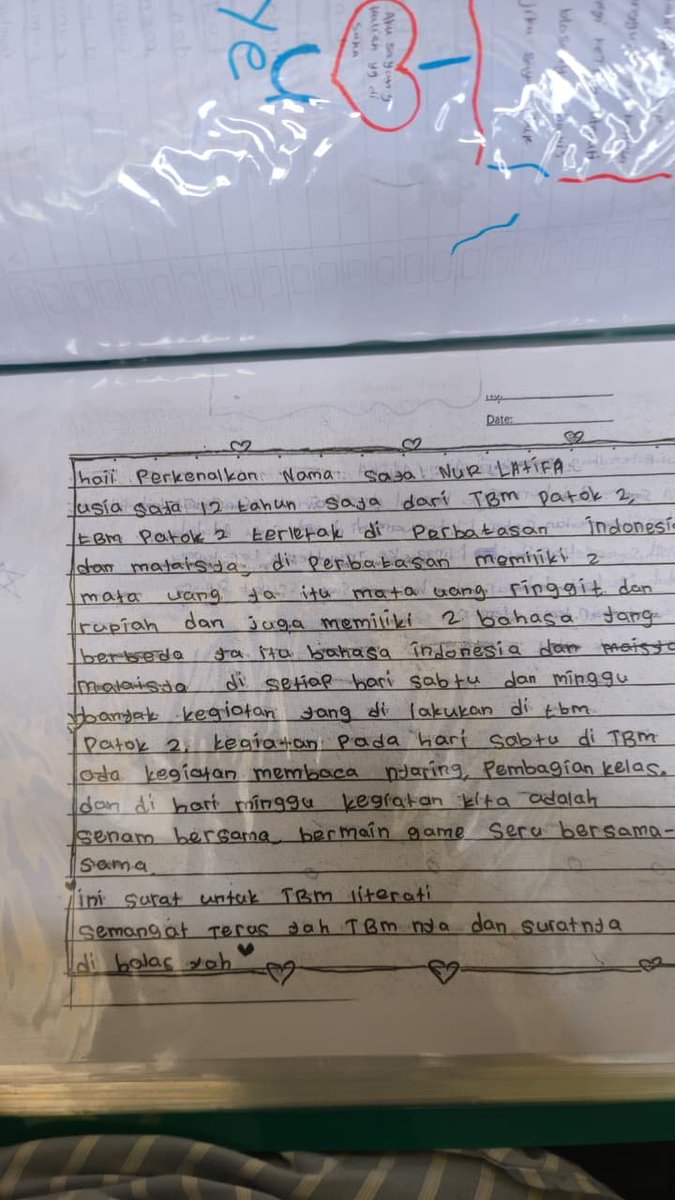 I
Aku sayang
kalian yg di
sana
U
Ye
Date:
haii Perkenalkan Nama saya NUR LATIFA
usia saya 12 tahun saya dari TBM Patok 2,
tBM Patok 2 terletak di Perbatasan indonesia
dan malaisya, di Perbatasan memiliki 2
mata uang ya itu mata uang ringgit dan
rupiah dan juga memiliki 2 bahasa yang
berbeda ya itu bahasa indonesia dan maisya
malaisya di setiap hari sabtu dan minggu
banyak kegiatan yang di lakukan di tbm
Patok 2, kegiatan Pada hari sabtu di TBM
ada kegiatan membaca nyaring, Pembagian kelas.
dan di hari minggu kegiatan kita adalah
senam bersama bermain game seru bersama-
sama
ini surat untuk TBM literati
semangat terus yah TBM nya dan suratnya
di balas yah